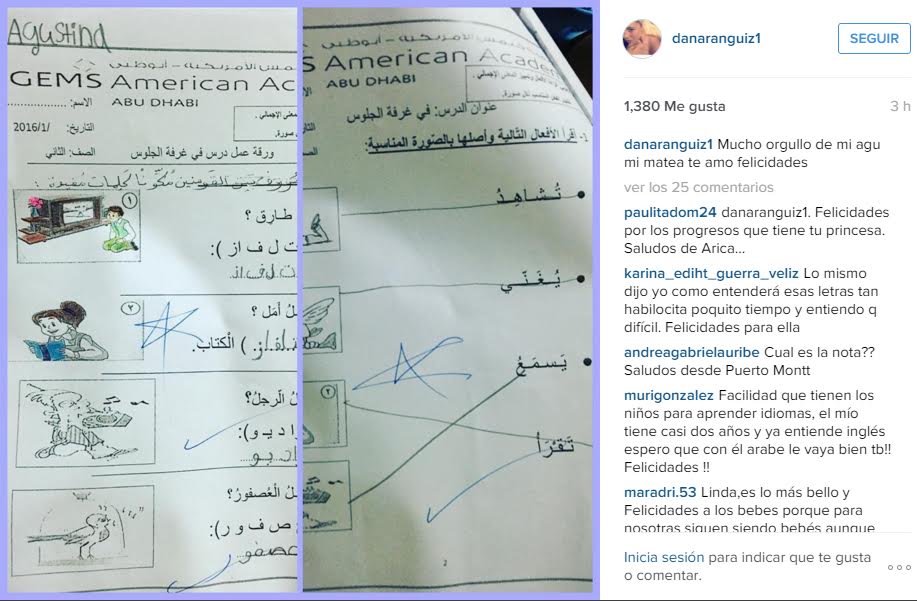 Agustina
شمس الأمريكية - أبوظبي
GEMS American Ac
ABU DHABI
الاسم:
التاريخ: /2016/1
الصف: الثاني
ورقة عمل درس في غرفة الجلوس
١
طارق ؟
ت ل ف ا ز ):
٢
أمل ؟
) الْكتاب.
الرجلُ؟
ا د ي و):
العُصفورُ؟
ص ف و ر):
عصفو
شمس الأمريكية - أبوظبي
S American Acade
ABU DHABI
عنوان الدرس: في غرفة الجلوس
١- اقرأ الأفعال التالية وأصلها بالصّورة المناسبة:
تُشاهِدُ
يُغَنّي
يَسمَعُ
٢
تَقْرَأ
2
danaranguiz1
SEGUIR
1,380 Me gusta
3 h
danaranguiz1 Mucho orgullo de mi agu
mi matea te amo felicidades
ver los 25 comentarios
paulitadom24 danaranguiz1. Felicidades
por los progresos que tiene tu princesa.
Saludos de Arica...
karina_ediht_guerra_veliz Lo mismo
dijo yo como entenderá esas letras tan
habilocita poquito tiempo y entiendo q
difícil. Felicidades para ella
andreagabrielauribe Cual es la nota??
Saludos desde Puerto Montt
murigonzalez Facilidad que tienen los
niños para aprender idiomas, el mío
tiene casi dos años y ya entiende inglés
espero que con él arabe le vaya bien tb!!
Felicidades !!
maradri.53 Linda,es lo más bello y
Felicidades a los bebes porque para
nosotras siguen siendo bebés aunque
Inicia sesión para indicar que te gusta
o comentar.